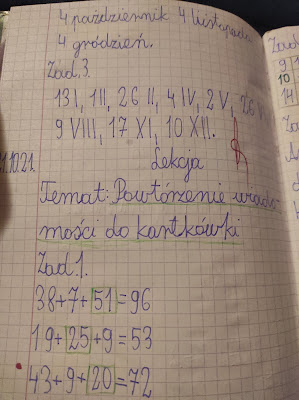 4 październik 4 listopada
4 gródzień.
Zad.3.
13 I, 1 II, 26 II, 4 IV, 2 V, 26 V
9 VIII, 17 XI, 10 XII.
Lekcja
1.10.21.
Temat: Powtórzenie wiado-
mości do kartkówki
Zad.1.
38+7+51=96
19+25+9=53
43+9+20=72
Zad
9
10
14